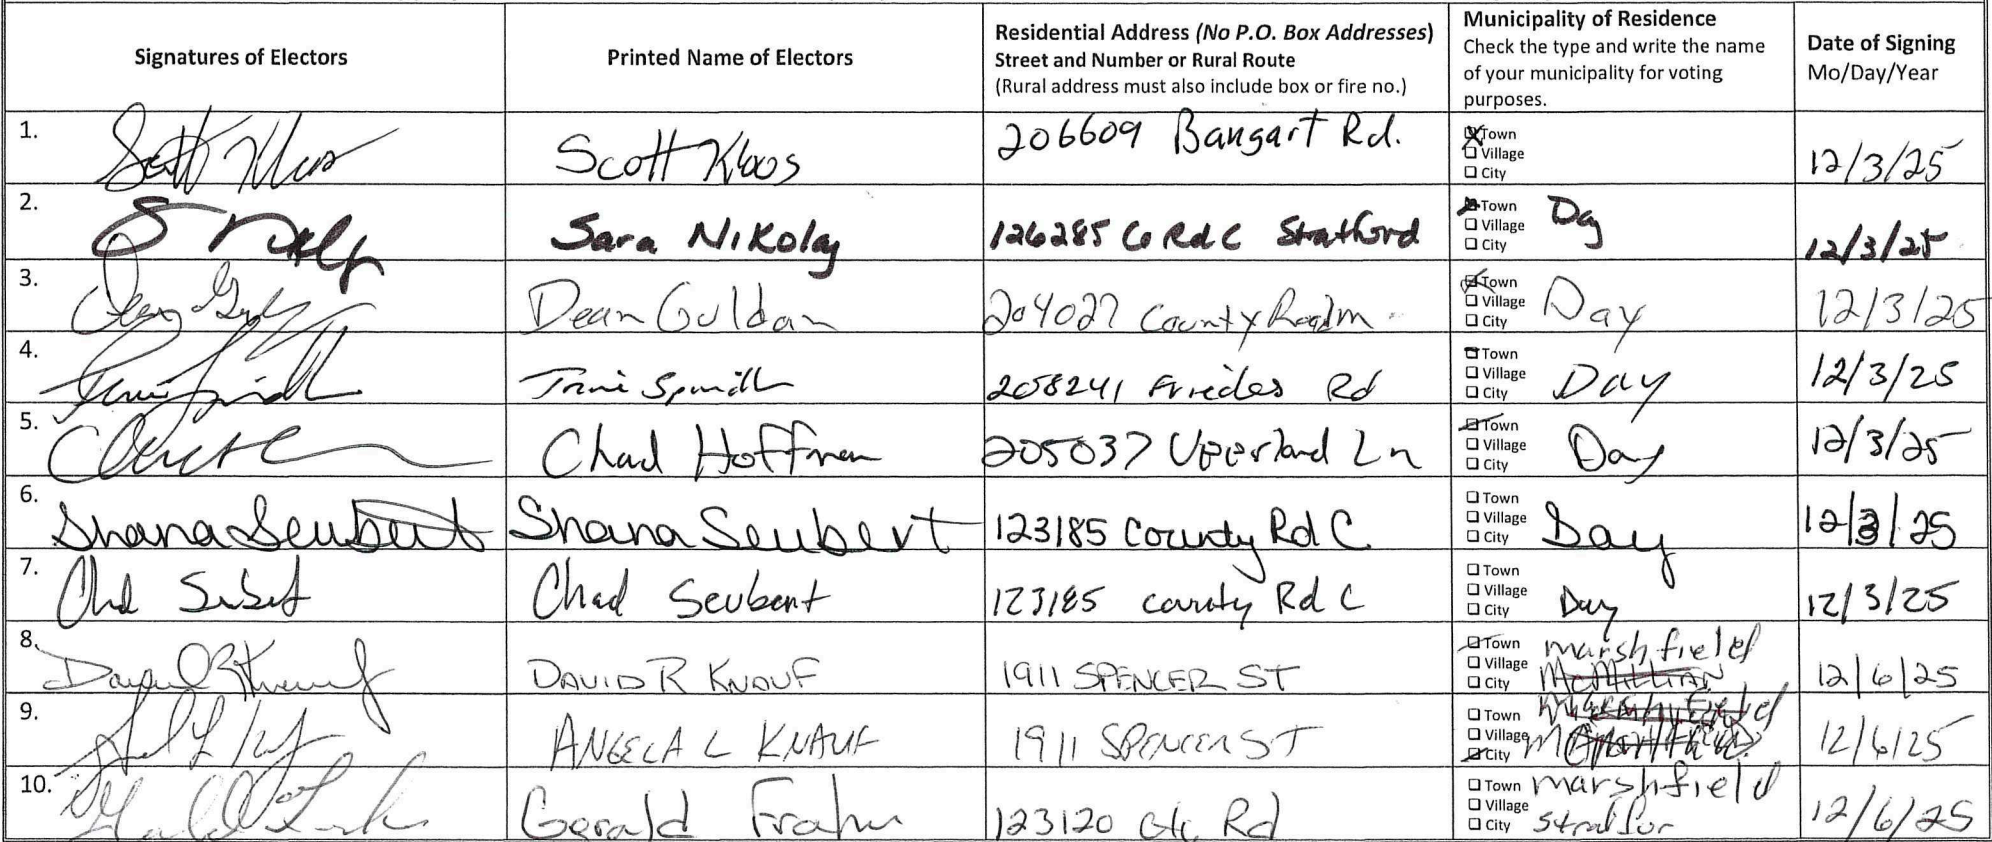 Signatures of Electors
Printed Name of Electors
Residential Address (No P.O. Box Addresses)
Street and Number or Rural Route
(Rural address must also include box or fire no.)
Municipality of Residence
Check the type and write the name
of your municipality for voting
purposes.
Date of Signing
Mo/Day/Year
1.
Scott Kloos
206609 Bangart Rd.
Town
Village
City
12/3/25
2.
Sara Nikolay
126285 Co Rd C Stratford
Town
Village
City
Day
12/3/25
3.
Dean Guldan
204027 County Road m
Town
Village
City
Day
12/3/25
4.
208241 Rd
Town
Village
City
Day
12/3/25
5.
Chad Hoffman
205037 Ln
Town
Village
City
Day
12/3/25
6.
Shana Seubert
Shana Seubert
123185 County Rd C
Town
Village
City
Day
12/3/25
7.
Chad Seubert
123185 county Rd C
Town
Village
City
Day
12/3/25
8.
DAVID R KNAUF
1911 SPENCER ST
Town
Village
City
marshfield
McMILLIAN
12/6/25
9.
ANGELA L KNAUF
1911 SPENCER ST
Town
Village
City
Marshfield
12/6/25
10.
Gerald Frahm
123120 Rd
Town
Village
City
marshfield
12/6/25